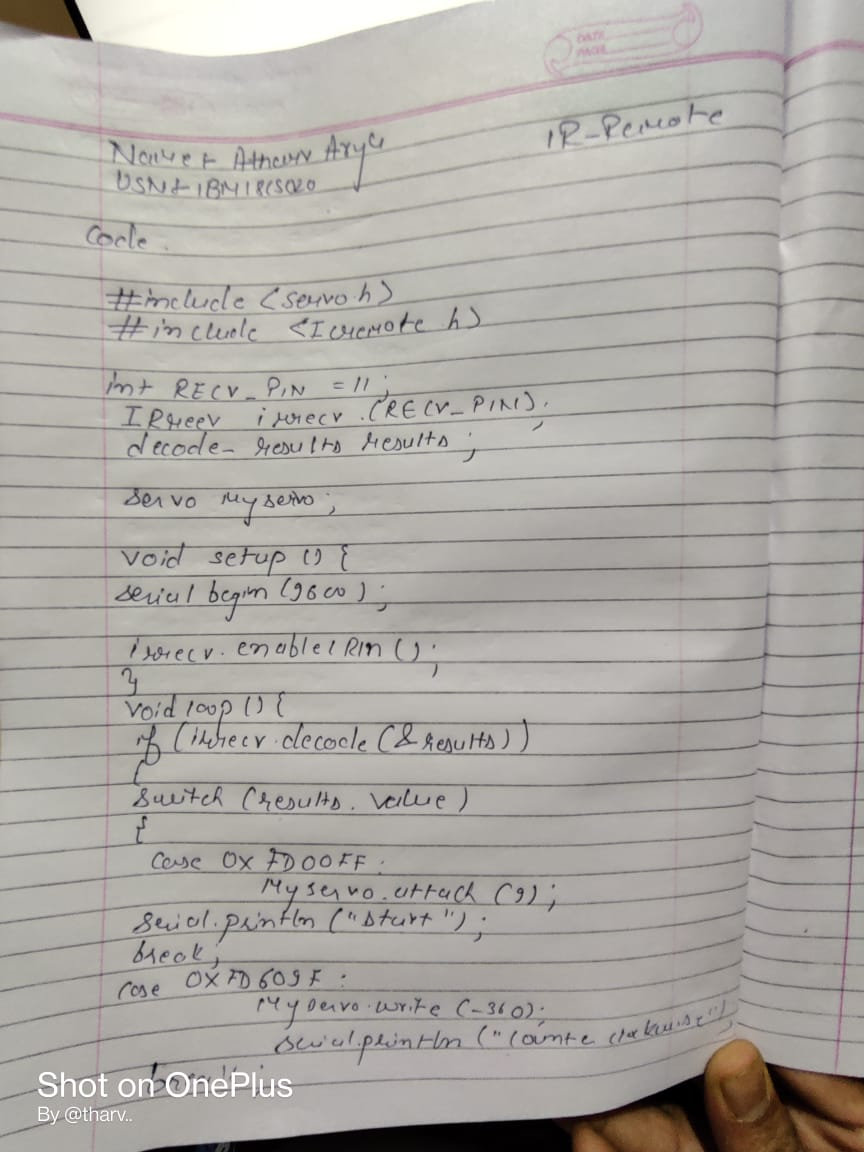 DATE
PAGE
IR-Remote
Name : Atharv Arya
USN : 1BM18CS020
Code.
#include <servo.h>
#include <Irremote h>
int RECV_PIN = 11;
IRrecv irrecv.(RECV_PIN);
decode_results results;
servo myservo;
void setup () {
serial begin (9600);
irrecv.enableIRIn ();
}
void loop () {
if (irrecv.decode (&results))
{
switch (results.value)
{
case 0X FD00FF:
Myservo.attach (9);
serial.println ("start");
break;
case 0XFD609F:
Myservo.write (-360);
serial.println ("counte clockwise")
break;
Shot on OnePlus
By @tharv..